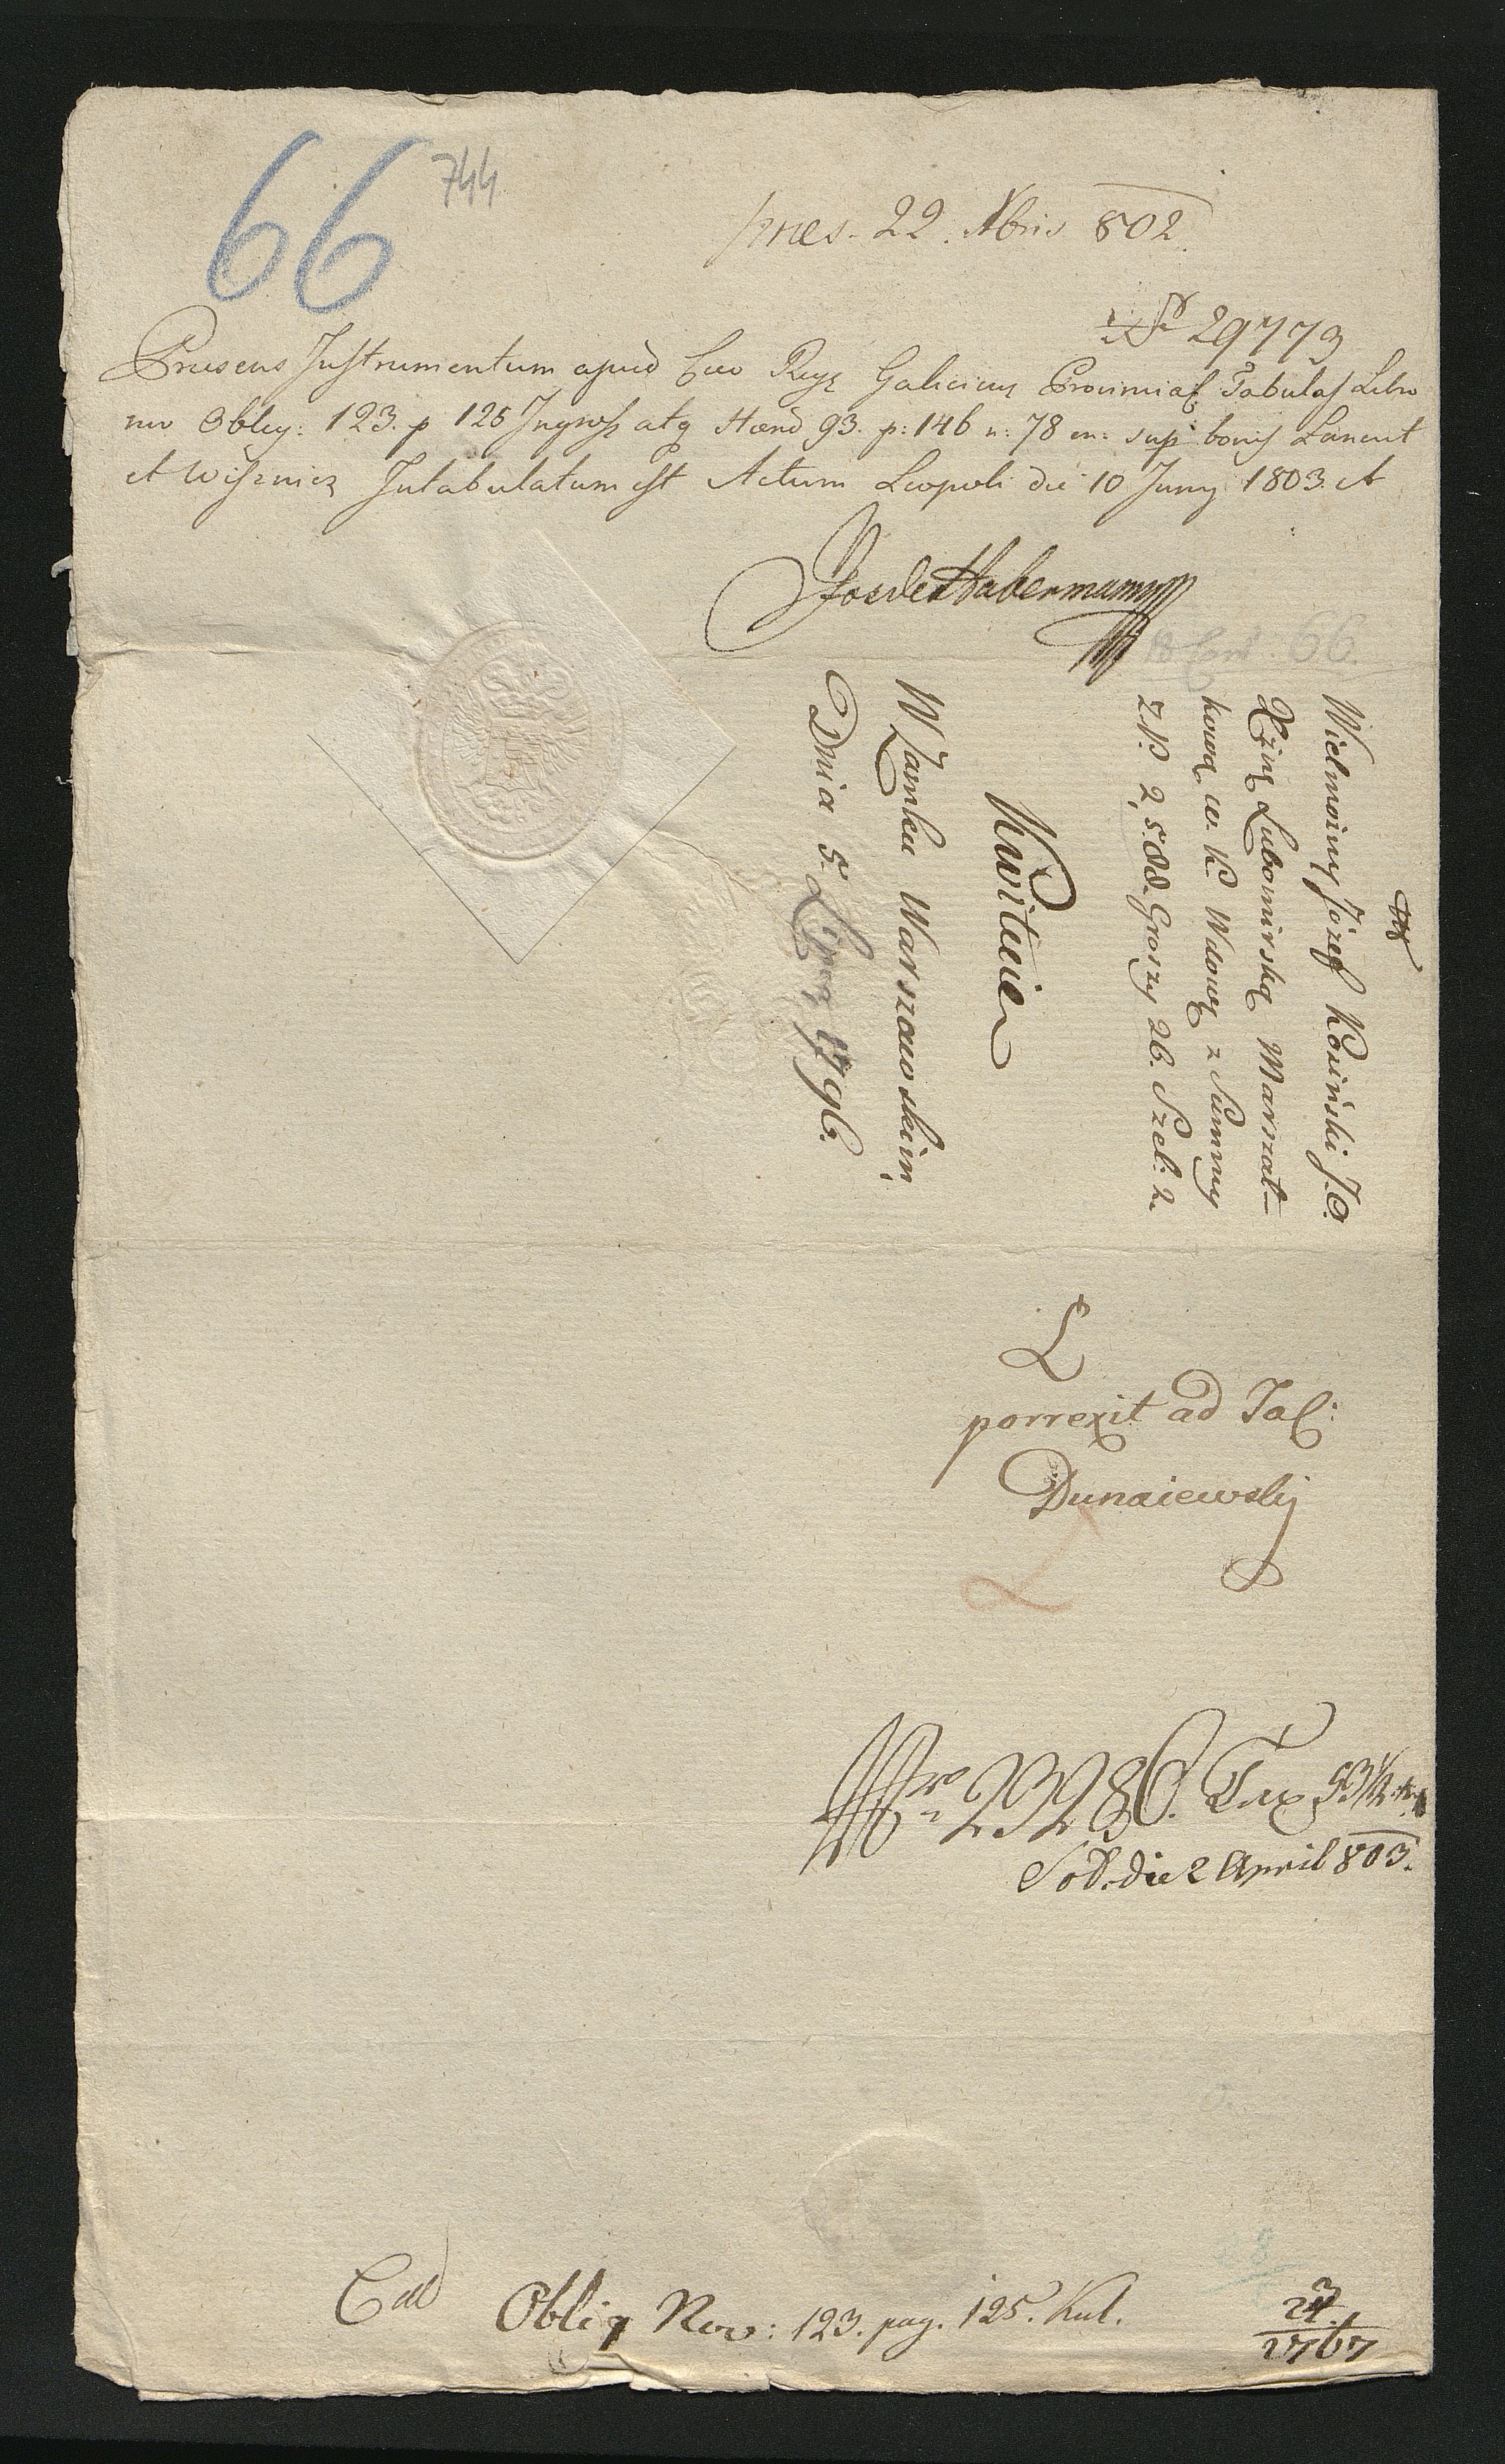 66 744
præs. 22. Xbris 802
Nr 29773
Præsens Instrumentum apud Cæo Regs Galiciens Provincial: Tabulas Libro
no Oblig: 123. p 125 Ingross atq Haered 93. p: 146 n: 78 on: sup bonis Lancut
et Wisznicz Intabulatum est Actum Leopoli die 10 Juny 1803. A
Habermann
66.
Wielmożny Józef Kosiński J.O.
Xżnę Lubomirską Marszał-
kową w. K. Wdowę z Summy
zł. 2,500. Groszy 26. Szel: 2.
Kwituie
W Zamku Warszawskim,
Dnia 5. Lipca 1796.
L
porrexit ad Tab:
Dunaiewsky
L
Nro 23286. Tax 53 1/2
Sol. die 2 April 803.
Cad Oblig Nov: 123. pag. 125.
2767